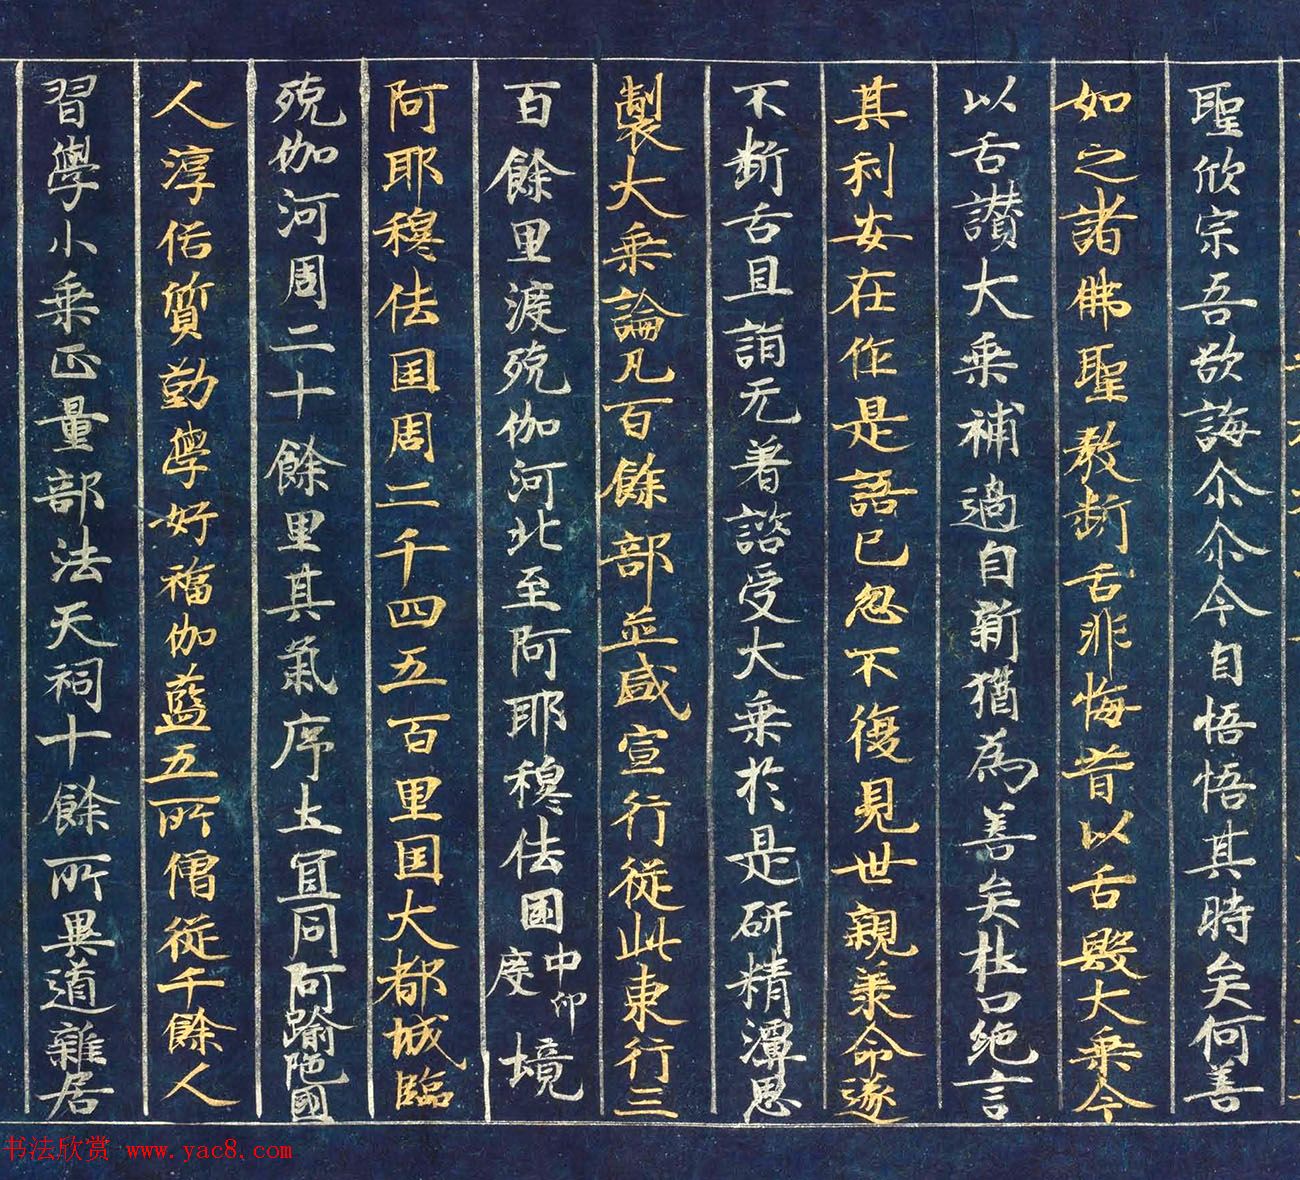 聖欣宗吾欲誨尒尒今自悟悟其時矣何善
如之諸佛聖教断舌非悔昔以舌毀大乗今
以舌讃大乗補過自新猶為善矣杜口絶言
其利安在作是語已忽不復見世親羕命遂
不断舌且詣无著諮受大乗於是研精潭思
製大乗論凡百餘部並盛宣行從此東行三
百餘里渡殑伽河北至阿耶穆佉國中印度境
阿耶穆佉国周二千四五百里国大都城臨
殑伽河周二十餘里其氣序土宜同阿踰陁國
人淳俗質勤學好福伽藍五所僧従千餘人
習學小乗正量部法天祠十餘所異道雜居
书法欣赏 www.yac8.com